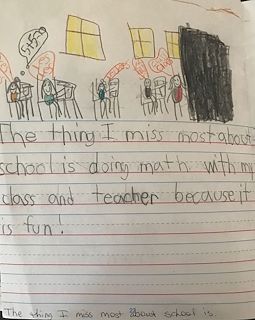 The thing I miss most about
school is doing math with my
class and teacher because it
is fun!
The thing I miss most about school is